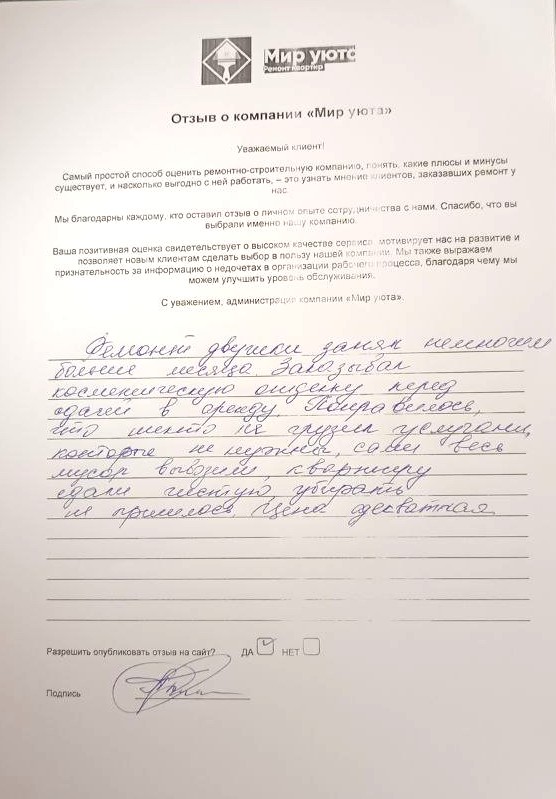 Мир уюта
Ремонт квартир
Отзыв о компании «Мир уюта»
Уважаемый клиент!
Самый простой способ оценить ремонтно-строительную компанию, понять, какие плюсы и минусы
существует, и насколько выгодно с ней работать, – это узнать мнение клиентов, заказавших ремонт у
нас.
Мы благодарны каждому, кто оставил отзыв о личном опыте сотрудничества с нами. Спасибо, что вы
выбрали именно нашу компанию.
Ваша позитивная оценка свидетельствует о высоком качестве сервиса, мотивирует нас на развитие и
позволяет новым клиентам сделать выбор в пользу нашей компании. Мы также выражаем
признательность за информацию о недочетах в организации рабочего процесса, благодаря чему мы
можем улучшить уровень обслуживания.
С уважением, администрация компании «Мир уюта».
Ремонт двушки занял немногим
больше месяца. Заказывал
косметическую отделку перед
сдачей в аренду. Понравилось,
что никто не грузил услугами,
которые не нужны, сами весь
мусор вывозили, квартиру
сдали чистую, убирать
не пришлось. Цена адекватная
Разрешить опубликовать отзыв на сайт? ДА НЕТ
Подпись